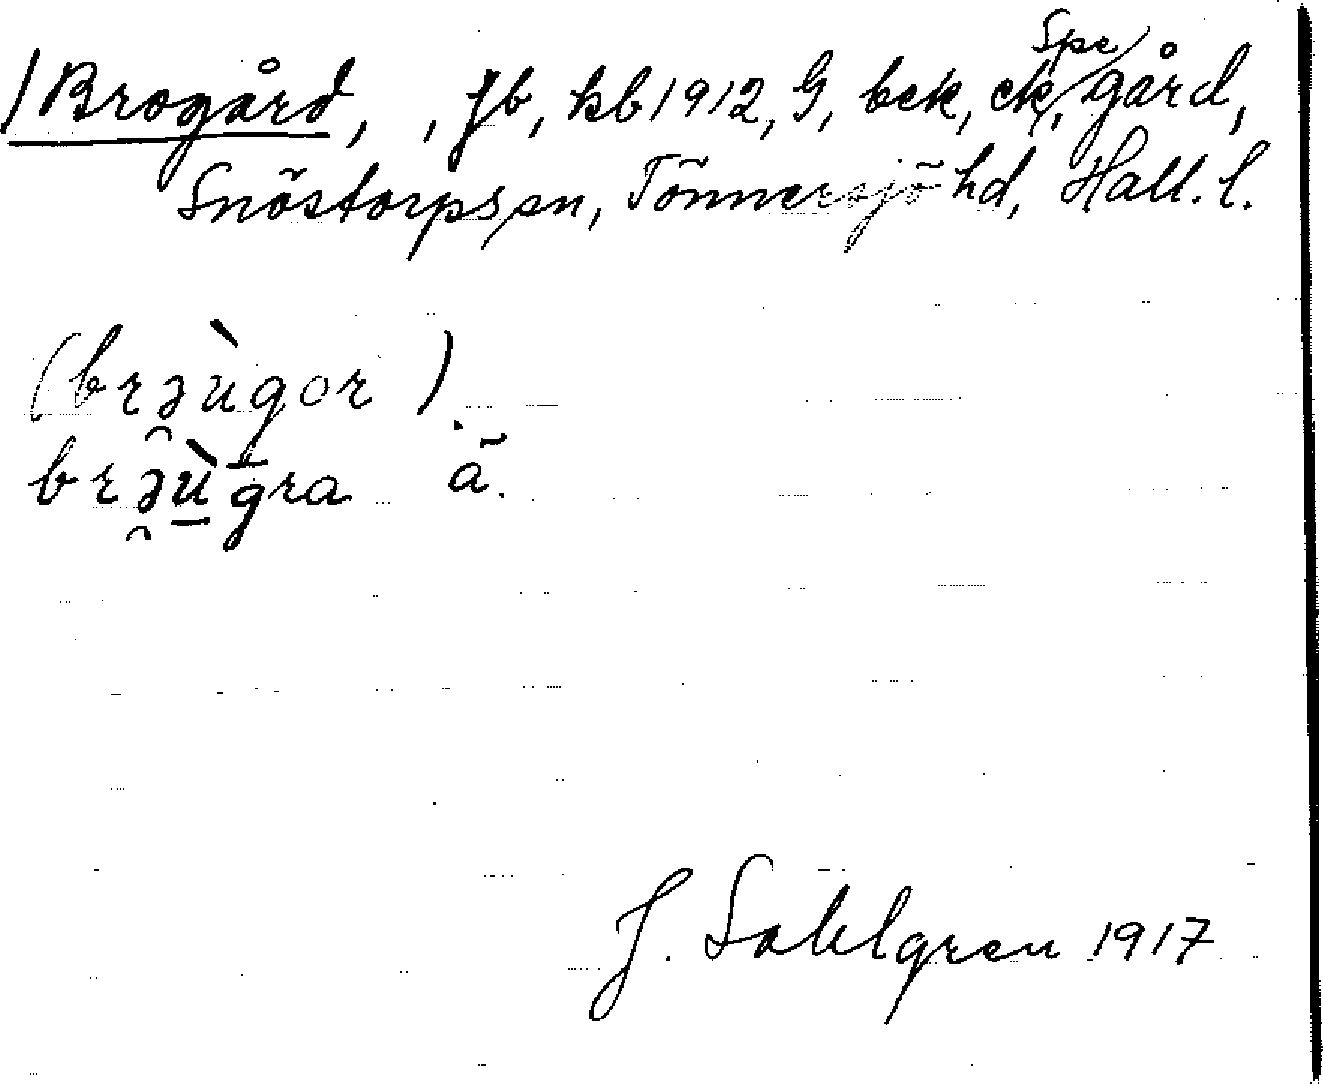 Spe
/Brogård, , Jb, kb 1912, G, bek, ek, gård,
Snöstorps sn, Tönnersjö hd, Hall. l.
(brəùgor).
brəùgra ã.
J. Sahlgren 1917